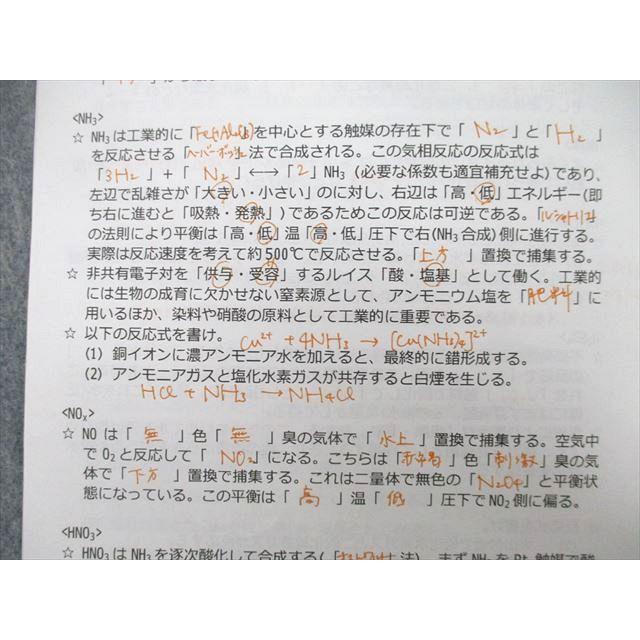 <NH₃>
☆ NH₃は工業的に「Fe₃O₄」を中心とする触媒の存在下で「 N₂ 」と「 H₂ 」
を反応させる「ハーバー・ボッシュ」法で合成される。この気相反応の反応式は
「3H₂」+「 N₂ 」⟷「 2 」NH₃ (必要な係数も適宜補充せよ)であり、
左辺で乱雑さが「大きい・小さい」のに対し、右辺は「高・低」エネルギー(即
ち右に進むと「吸熱・発熱」)であるためこの反応は可逆である。「ルシャトリエ
の法則により平衡は「高・低」温「高・低」圧下で右(NH₃合成)側に進行する。
実際は反応速度を考えて約500℃で反応させる。「上方 」置換で捕集する。
☆ 非共有電子対を「供与・受容」するルイス「酸・塩基」として働く。工業的
には生物の成育に欠かせない窒素源として、アンモニウム塩を「肥料」に
用いるほか、染料や硝酸の原料として工業的に重要である。
☆ 以下の反応式を書け。 Cu²⁺ + 4NH₃ → [Cu(NH₃)₄]²⁺
(1) 銅イオンに濃アンモニア水を加えると、最終的に錯形成する。
(2) アンモニアガスと塩化水素ガスが共存すると白煙を生じる。
HCl + NH₃ → NH₄Cl
<NOₓ>
☆ NOは「 無 」色「 無 」臭の気体で「 水上 」置換で捕集する。空気中
でO₂と反応して「 NO₂ 」になる。こちらは「赤褐」色「刺激」臭の気
体で「 下方 」置換で捕集する。これは二量体で無色の「N₂O₄」と平衡状
態になっている。この平衡は「 高 」温「 低 」圧下でNO₂側に偏る。
<HNO₃>
☆ HNO₃はNH₃を逐次酸化して合成する(「オストワルト」法)。まずNH₃をPt触媒で酸